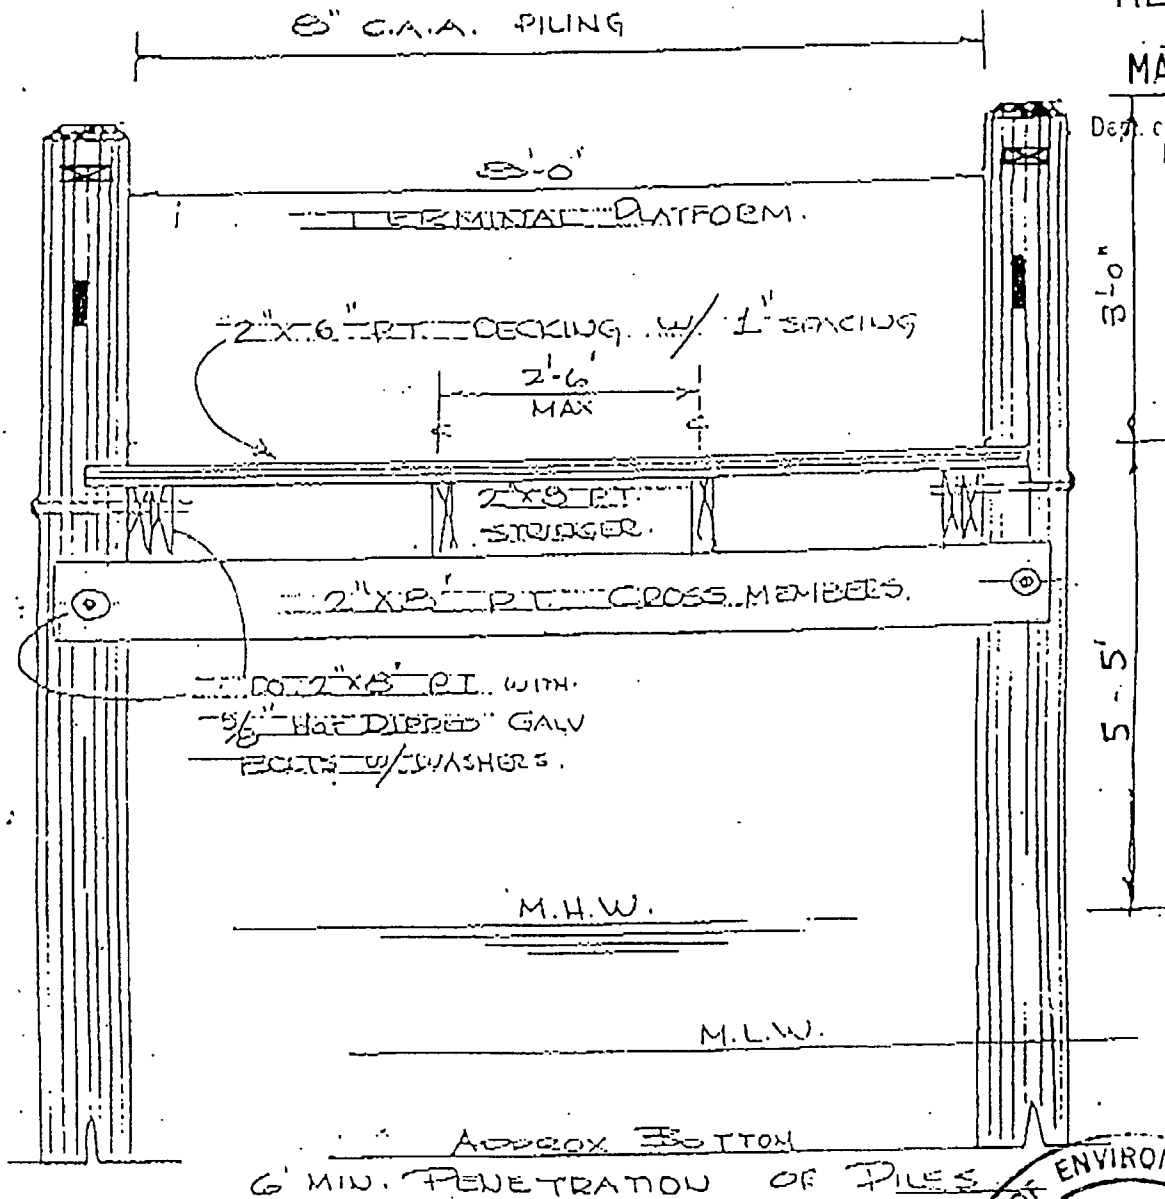 8" C.A.A. PILING
8'-0"
TERMINAL PLATFORM.
2"X6" P.T. DECKING W/ 1" SPACING
2'-6"
MAX
3'-0"
2"X8" P.T.
STRINGER.
2"X8" P.T. CROSS MEMBERS.
2"X8" P.T. WITH
5/8" HOT DIPPED GALV
BOLTS W/WASHERS.
5-5'
M.H.W.
M.L.W.
APPROX BOTTOM
6' MIN. PENETRATION OF PILES